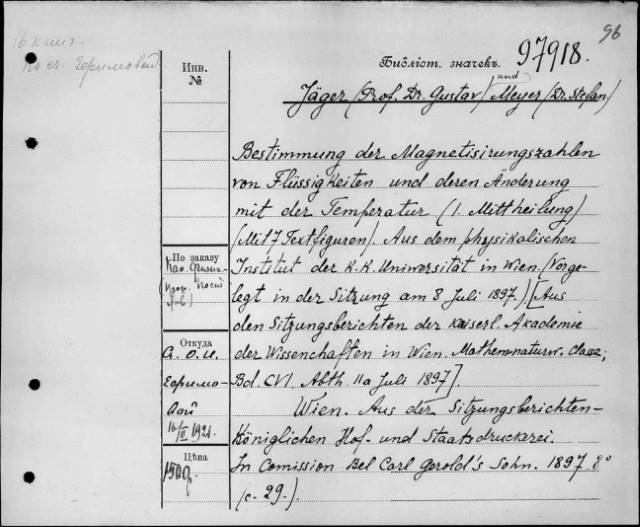 96
16 книг
по сч. Ефимовой
Инв.
№
Библіот. значекъ. 97918.
Jäger (Prof. Dr. Gustav) und Meyer (Dr. Stefan)
Bestimmung der Magnetisirungszahlen
von Flüssigkeiten und deren Änderung
mit der Temperatur (1. Mittheilung)
(Mit 7 Textfiguren). Aus dem physikalischen
Institut der K.K. Universität in Wien. (Vorge-
legt in der Sitzung am 8 Juli 1897.) [Aus
den Sitzungsberichten der Kaiserl. Akademie
der Wissenchaften in Wien. Mathem. naturw. Classe;
Bd. CVI. Abth. IIa Juli 1897].
Wien. Aus der Sitzungsberichten-
Königlichen Hof- und Staatsdruckerei.
In Comission Bei Carl Gerold's Sohn. 1897. 8°
(c. 29.)
По заказу
Каѳ. Физик.
Откуда
А. О. И.
Ефимо-
вой
1921.
Цѣна
150 р.